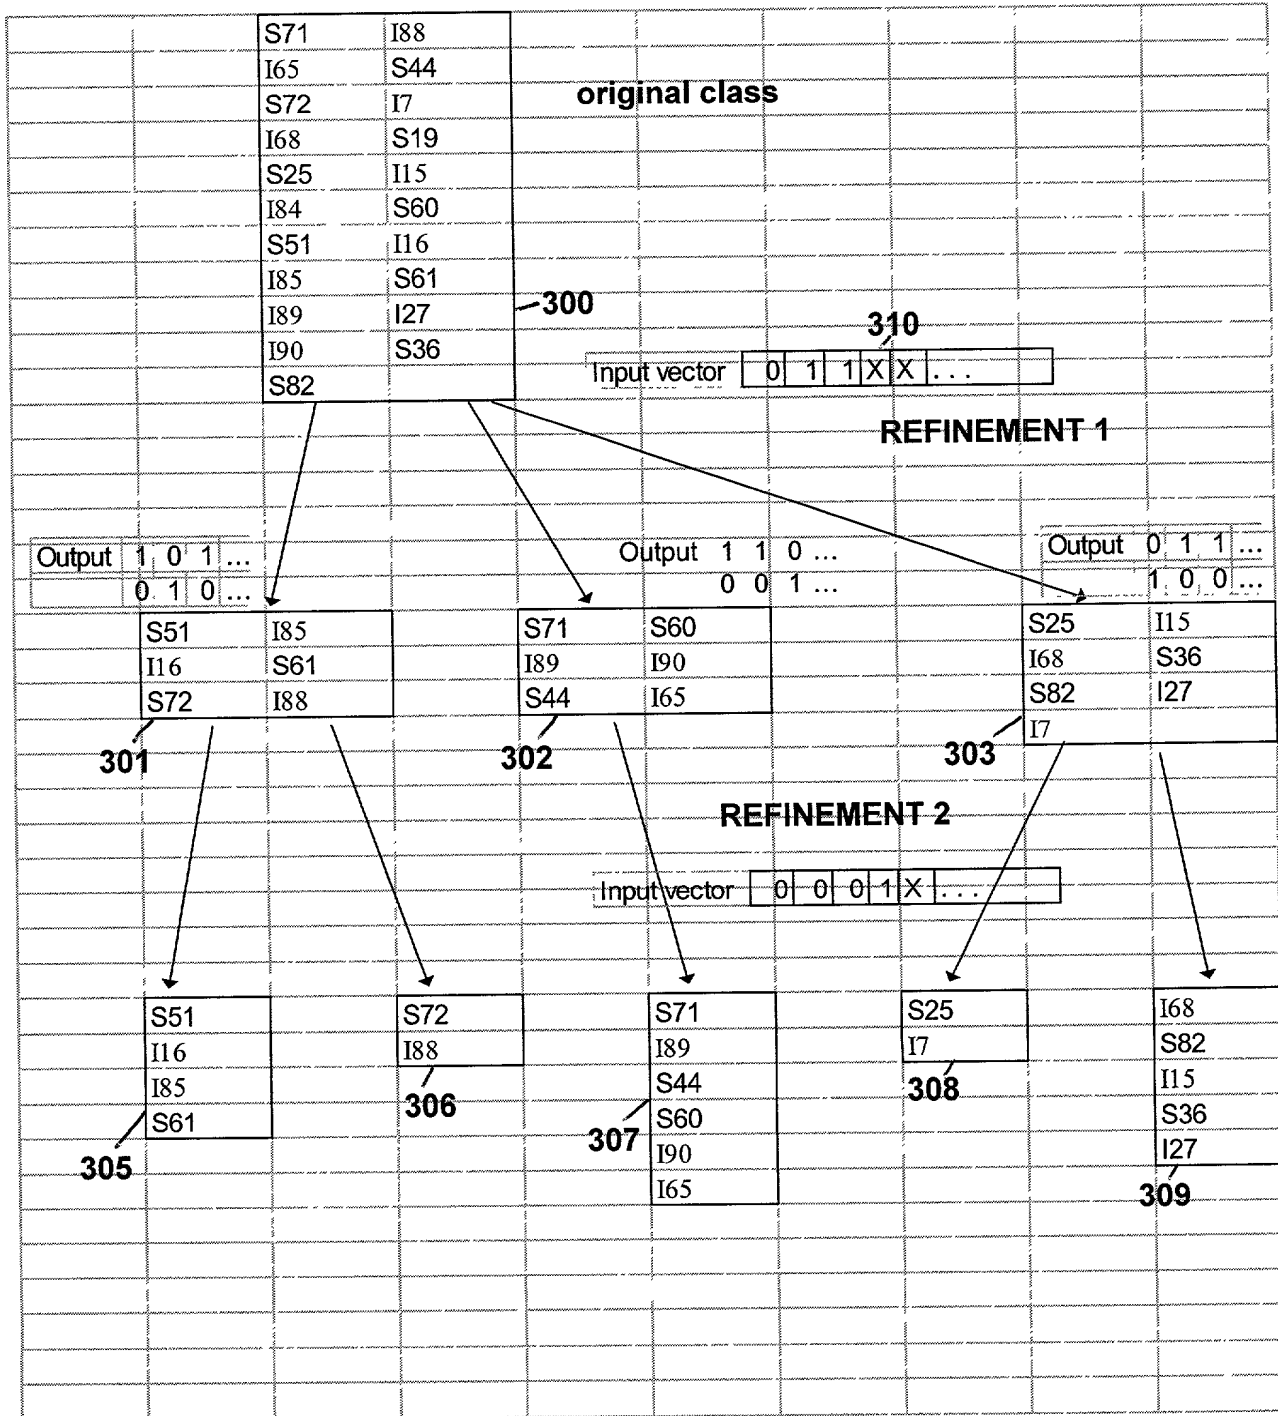 S71 I88
I65 S44
original class
S72 I7
I68 S19
S25 I15
I84 S60
S51 I16
I85 S61
300
I89 I27
310
I90 S36
Input vector 0 1 1 X X ...
S82
REFINEMENT 1
Output 1 0 1 ...
0 1 0 ...
Output 1 1 0 ...
0 0 1 ...
Output 0 1 1 ...
1 0 0 ...
S51 I85
I16 S61
S72 I88
301
S71 S60
I89 I90
S44 I65
302
S25 I15
I68 S36
S82 I27
I7
303
REFINEMENT 2
Input vector 0 0 0 1 X ...
S51
I16
I85
S61
305
S72
I88
306
S71
I89
S44
S60
I90
I65
307
S25
I7
308
I68
S82
I15
S36
I27
309